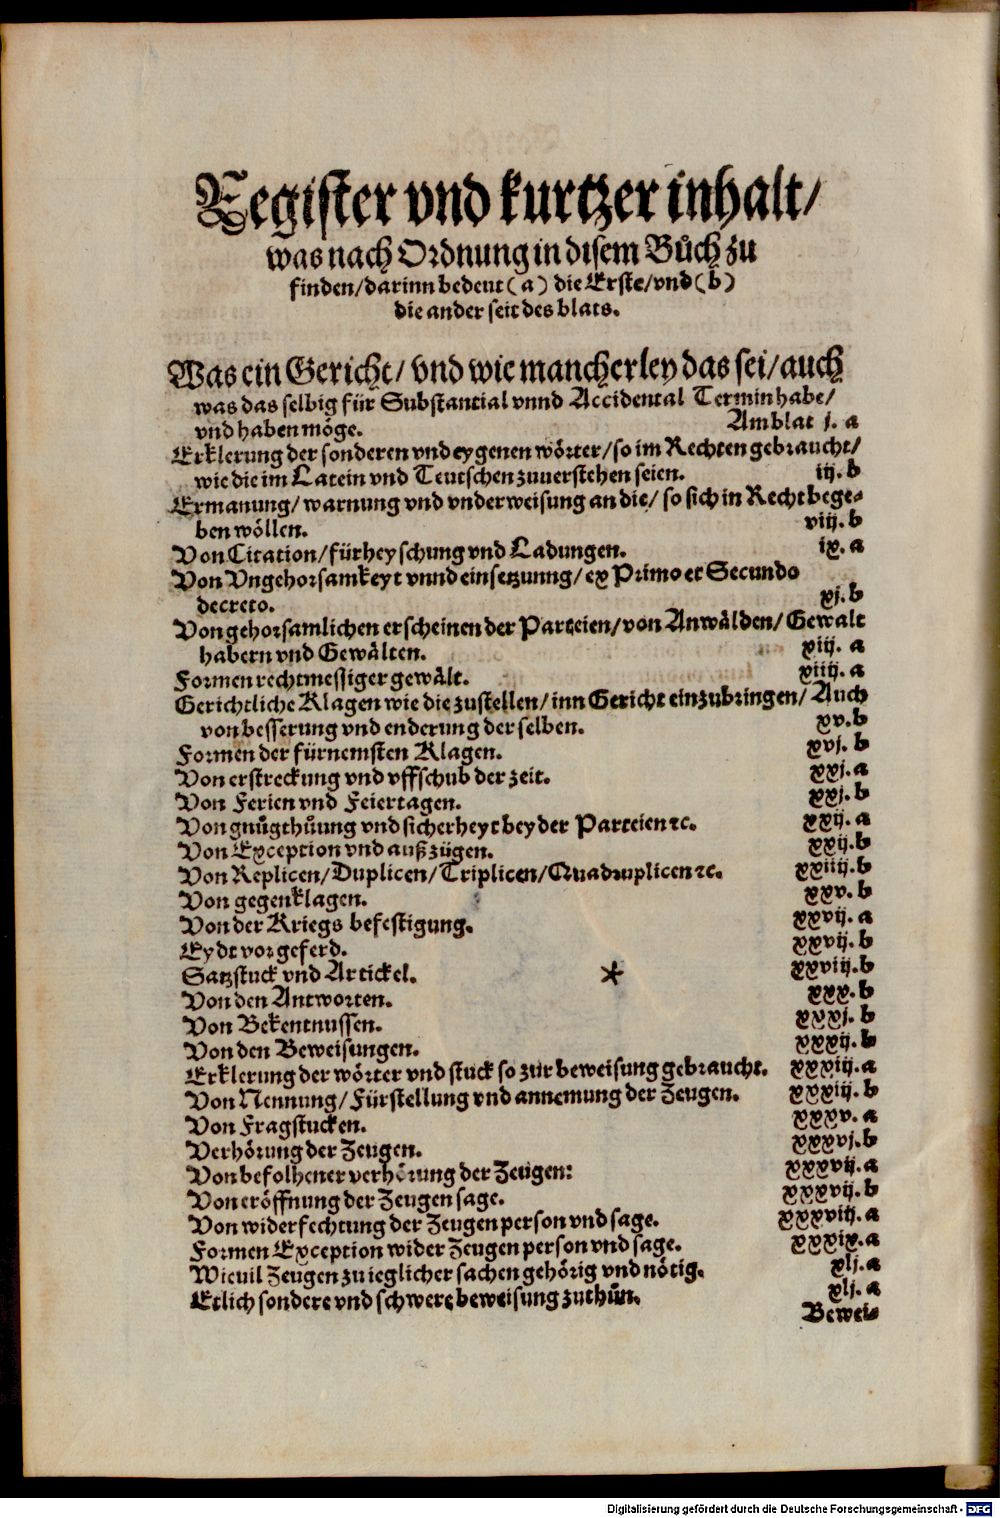 Register vnd kurtzer inhalt/
was nach Ordnung in disem Bůch zu
finden/darinn bedeut (a) die Erste/vnd (b)
die ander seit des blats.
Was ein Gericht/ vnd wie mancherley das sei/auch
was das selbig für Substantial vnnd Accidental Termin habe/
vnd haben möge. Amblat j. a
Erklerung der sonderen vnd eygenen wörter/so im Rechten gebraucht/
wie die im Latein vnd Teutschen zuuerstehen seien. iij. b
Ermanung/ warnung vnd vnderweisung an die/ so sich in Recht bege-
ben wöllen. viij. b
Von Citation/fürheyschung vnd Ladungen. ix. a
Von Vngehorsamkeyt vnnd einsetzunng/ ex Primo et Secundo
decreto. xj. b
Von gehorsamlichen erscheinen der Parteien/von Anwälden/ Gewalt
habern vnd Gewälten. xiij. a
Formen rechtmessiger gewält. xiiij. a
Gerichtliche Klagen wie die zustellen/inn Gericht einzubringen/ Auch
von besserung vnd enderung der selben. xv. b
Formen der fürnemsten Klagen. xvj. b
Von erstreckung vnd vffschub der zeit. xxj. a
Von Ferien vnd Feiertagen. xxj. b
Von gnůgthůung vnd sicherheyt bey der Parteien ꝛc. xxij. a
Von Exception vnd außzügen. xxij. b
Von Replicen/Duplicen/Triplicen/Quadruplicen ꝛc. xxiij. b
Von gegenklagen. xxv. b
Von der Kriegs befestigung. xxvij. a
Eydt vor geferd. xxvij. b
Satzstuck vnd Artickel. * xxviij. b
Von den Antworten. xxx. b
Von Bekentnussen. xxxj. b
Von den Beweisungen. xxxij. b
Erklerung der wörter vnd stuck so zur beweisung gebraucht. xxxiij. a
Von Nennung/Fürstellung vnd annemung der Zeugen. xxxiij. b
Von Fragstucken. xxxv. a
Verhörung der Zeugen. xxxvj. b
Von befolhener verhörung der Zeugen: xxxvij. a
Von eröffnung der Zeugen sage. xxxvij. b
Von widerfechtung der Zeugen person vnd sage. xxxviij. a
Formen Exception wider Zeugen person vnd sage. xxxix. a
Wieuil Zeugen zu ieglicher sachen gehörig vnd nötig. xlj. a
Etlich sondere vnd schwere beweisung zuthůn. xlj. a
Bewei-
Digitalisierung gefördert durch die Deutsche Forschungsgemeinschaft - DFG